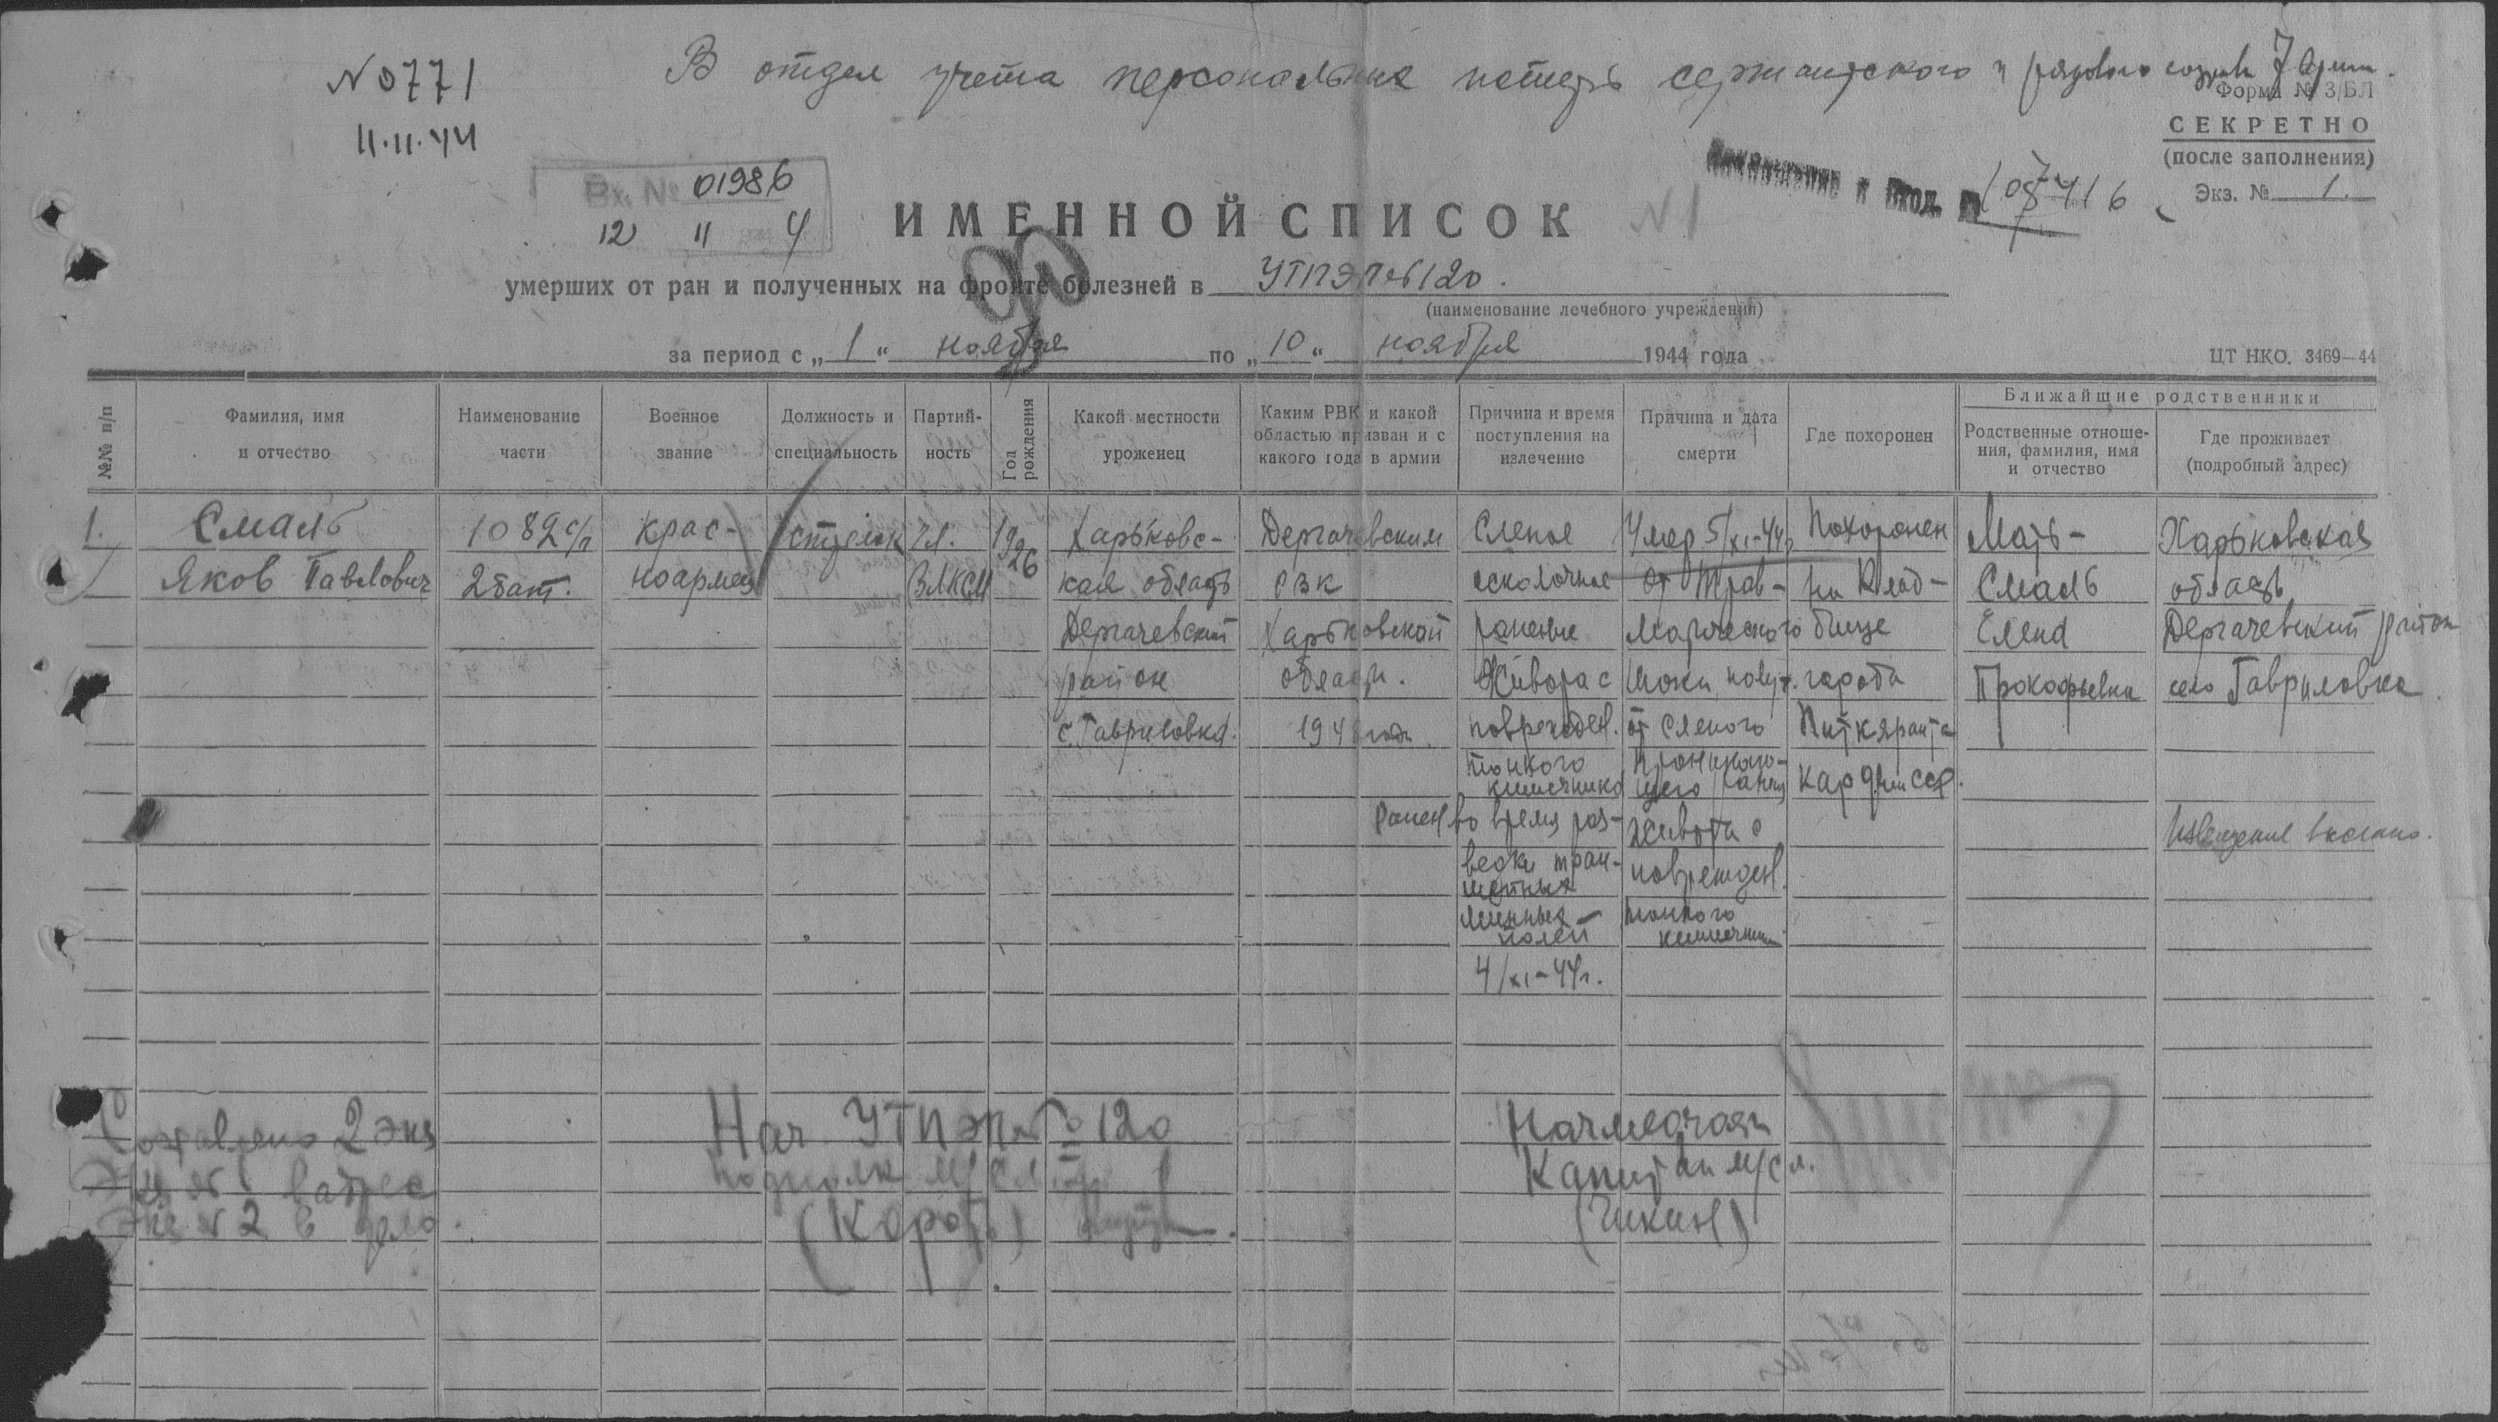 № 0771
11.11.44
В отдел учета персональных потерь сержантского и рядового состава 7 Арми
Форма № 3/БЛ
СЕКРЕТНО
(после заполнения)
Экз. № 1.
Вх. № 01986
12 11 4
вход.
ИМЕННОЙ СПИСОК №1
умерших от ран и полученных на фронте болезней в УТПЭП №120.
(наименование лечебного учреждения)
за период с „1“ ноября по „10“ ноября 1944 года
ЦТ НКО. 3469—44
№№ п/п
Фамилия, имя и отчество
Наименование части
Военное звание
Должность и специальность
Партийность
Год рождения
Какой местности уроженец
Каким РВК и какой областью призван и с какого года в армии
Причина и время поступления на излечение
Причина и дата смерти
Где похоронен
Ближайшие родственники
Родственные отношения, фамилия, имя и отчество
Где проживает (подробный адрес)
1.
Смаль
Яков Павлович
1082 с/п
2 бат.
крас-
ноармеец
стрелок
чл.
ВЛКСМ
19
26
Харьковс-
кая область
Дергачевский
район
с. Гавриловка.
Дергачевским
РВК
Харьковской
области.
194 года.
Слепое
осколочное
ранение
живота с
поврежден.
тонкого
кишечника
Ранен во время раз-
ведки
минных
полей
4/XI-44г.
Умер 5/XI-44г.
от трав-
матического
шока
от слепого
проникаю-
щего ранен
живота с
поврежден.
тонкого
кишечника
Похоронен
на клад-
бище
города
Питкяранта
Кар Фин ССР.
Мать-
Смаль
Елена
Прокофьевна
Харьковская
область
Дергачевский район
село Гавриловка
Извещение выслано.
Составлено 2 экз
Экз №1 в адрес
Экз №2 в дело.
Нач УТПЭП №120
подполк м/сл
Начмедчасти
Капитан м/сл.
(Чикин)